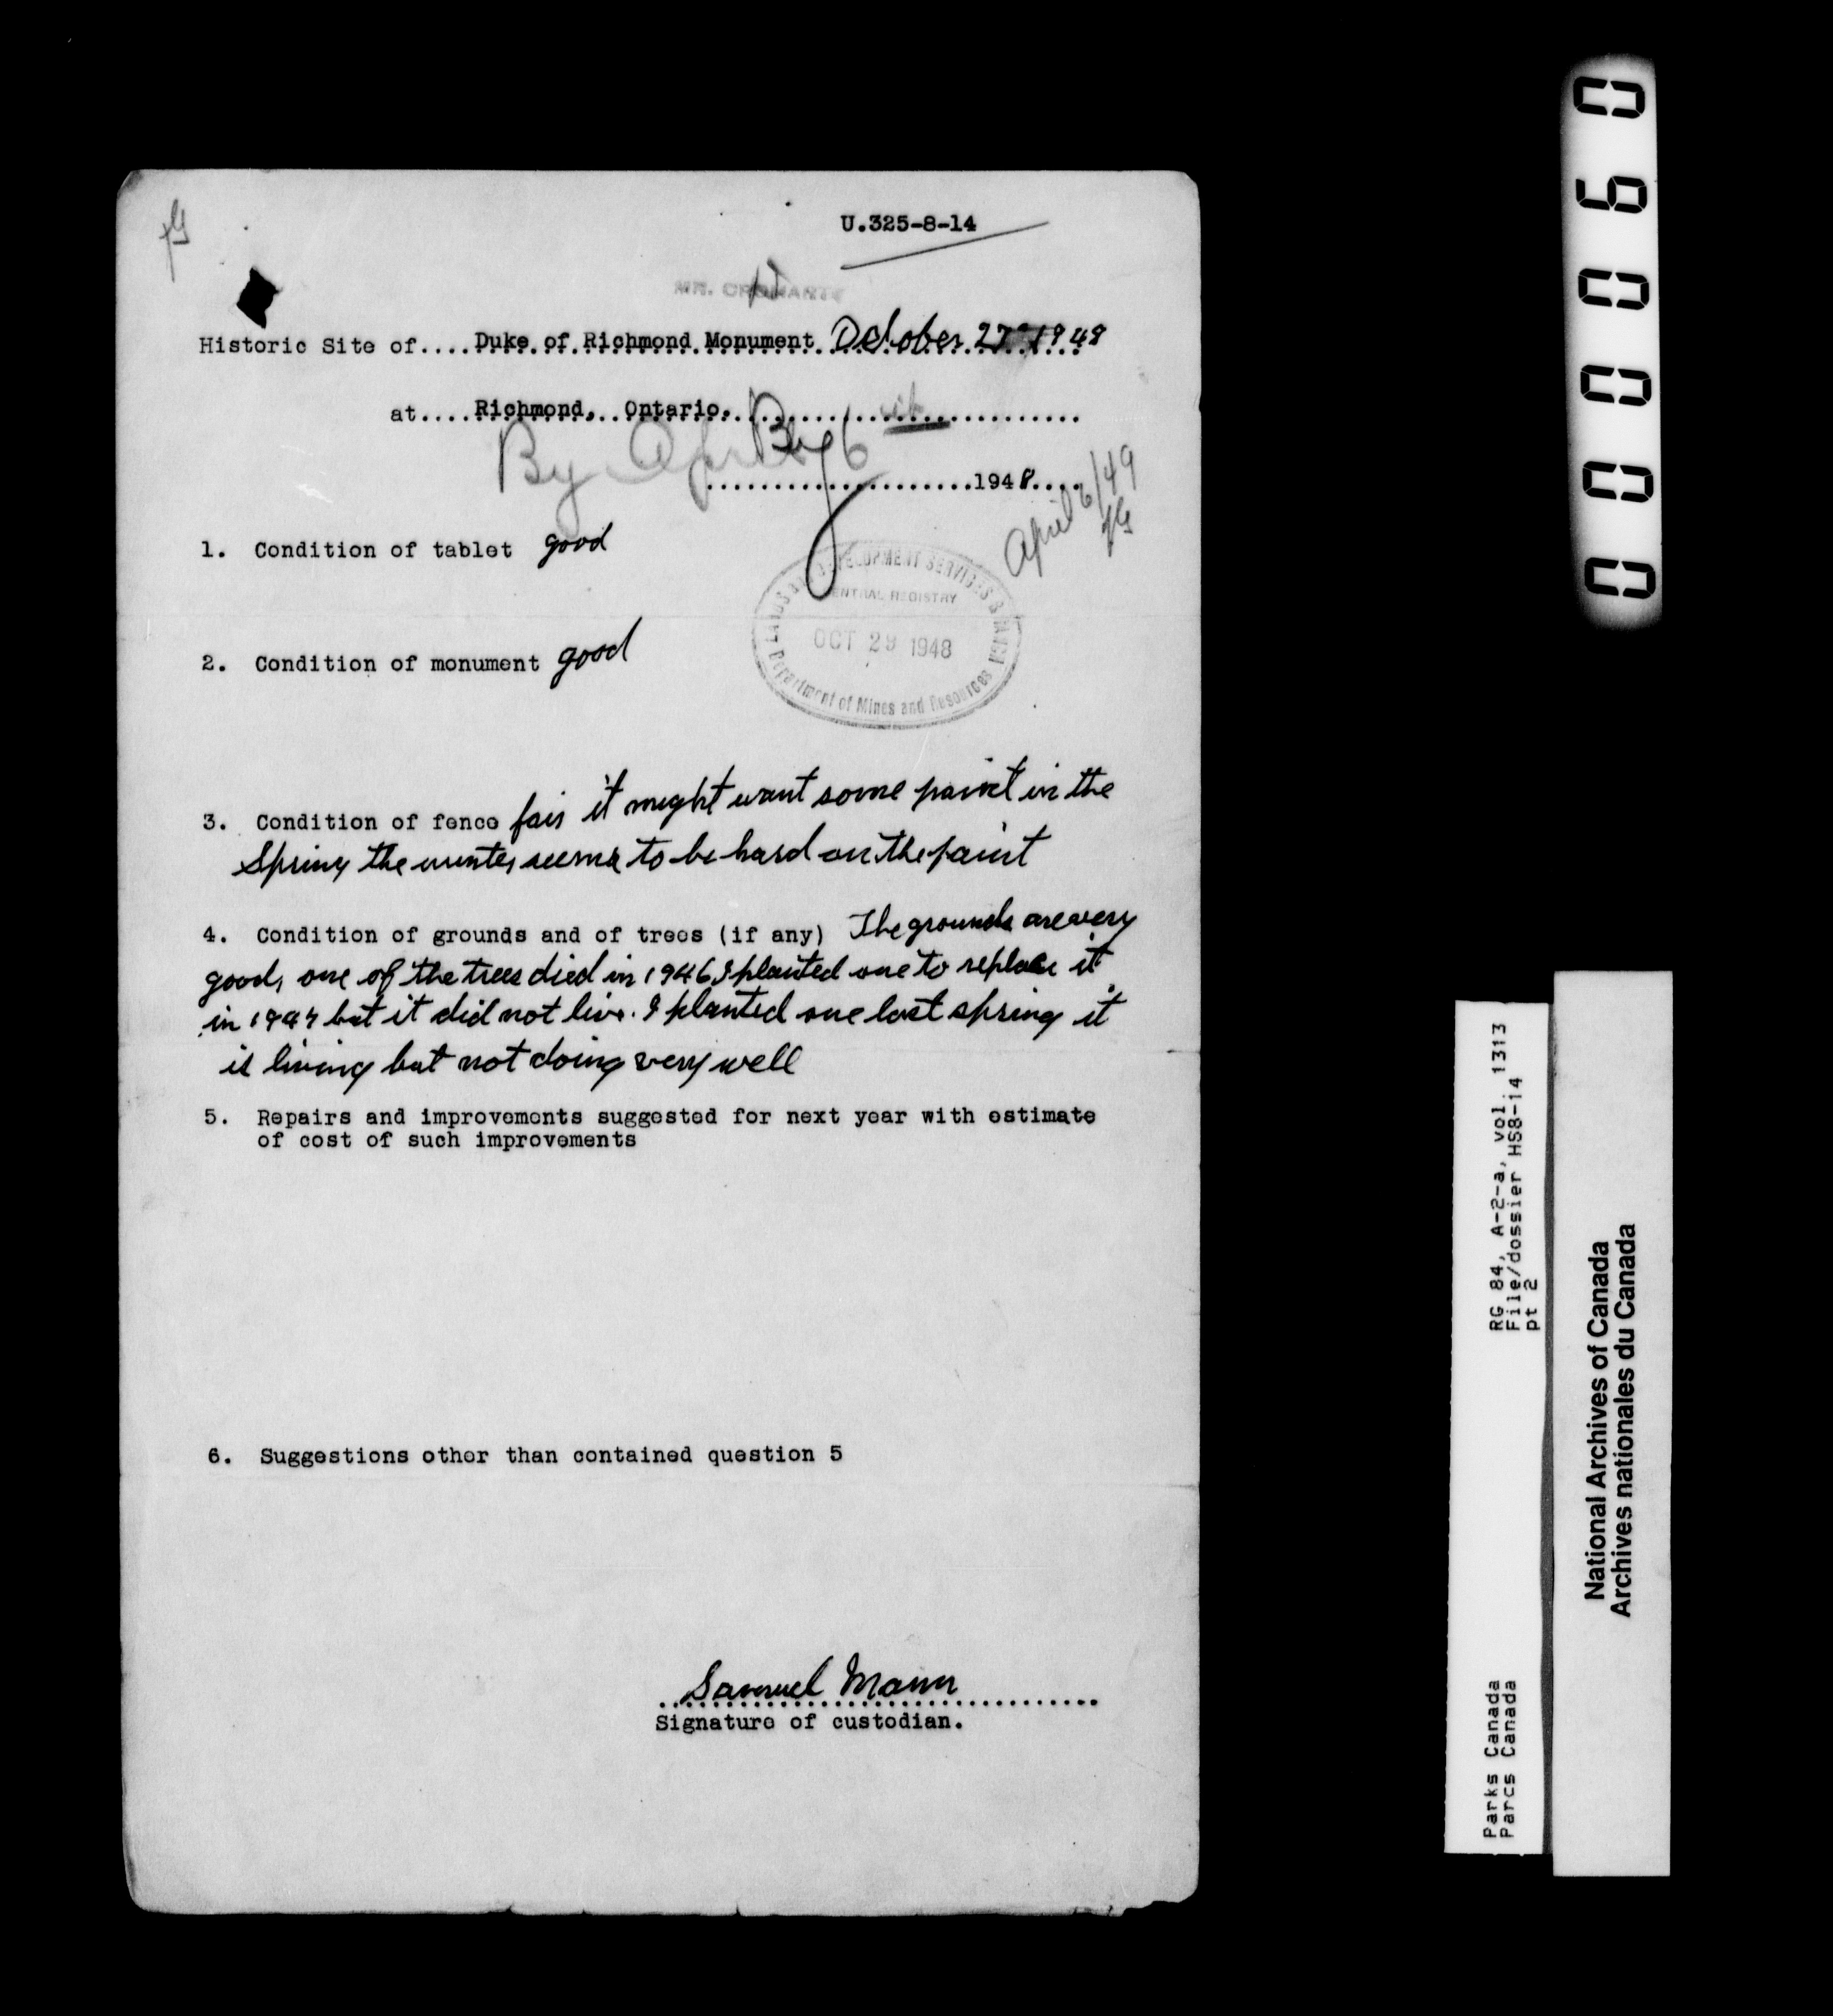 U.325-8-14
MR. CROMARTY
Historic Site of....Duke of Richmond Monument October 27 1948
at....Richmond, Ontario.
By April 6
.....................1948....
April 6/49
1. Condition of tablet good
LANDS AND DEVELOPMENT SERVICES BRANCH
CENTRAL REGISTRY
OCT 29 1948
Department of Mines and Resources
2. Condition of monument good
3. Condition of fence fair it might want some paint in the
Spring the winter seems to be hard on the paint
4. Condition of grounds and of trees (if any) The grounds are very
good, one of the trees died in 1946 I planted one to replace it
in 1947 but it did not live. I planted one last spring it
is living but not doing very well
5. Repairs and improvements suggested for next year with estimate
of cost of such improvements
6. Suggestions other than contained question 5
Samuel Mann
Signature of custodian.
000060
RG 84, A-2-a, vol. 1313
File/dossier HS8-14
pt 2
Parks Canada
Parcs Canada
National Archives of Canada
Archives nationales du Canada